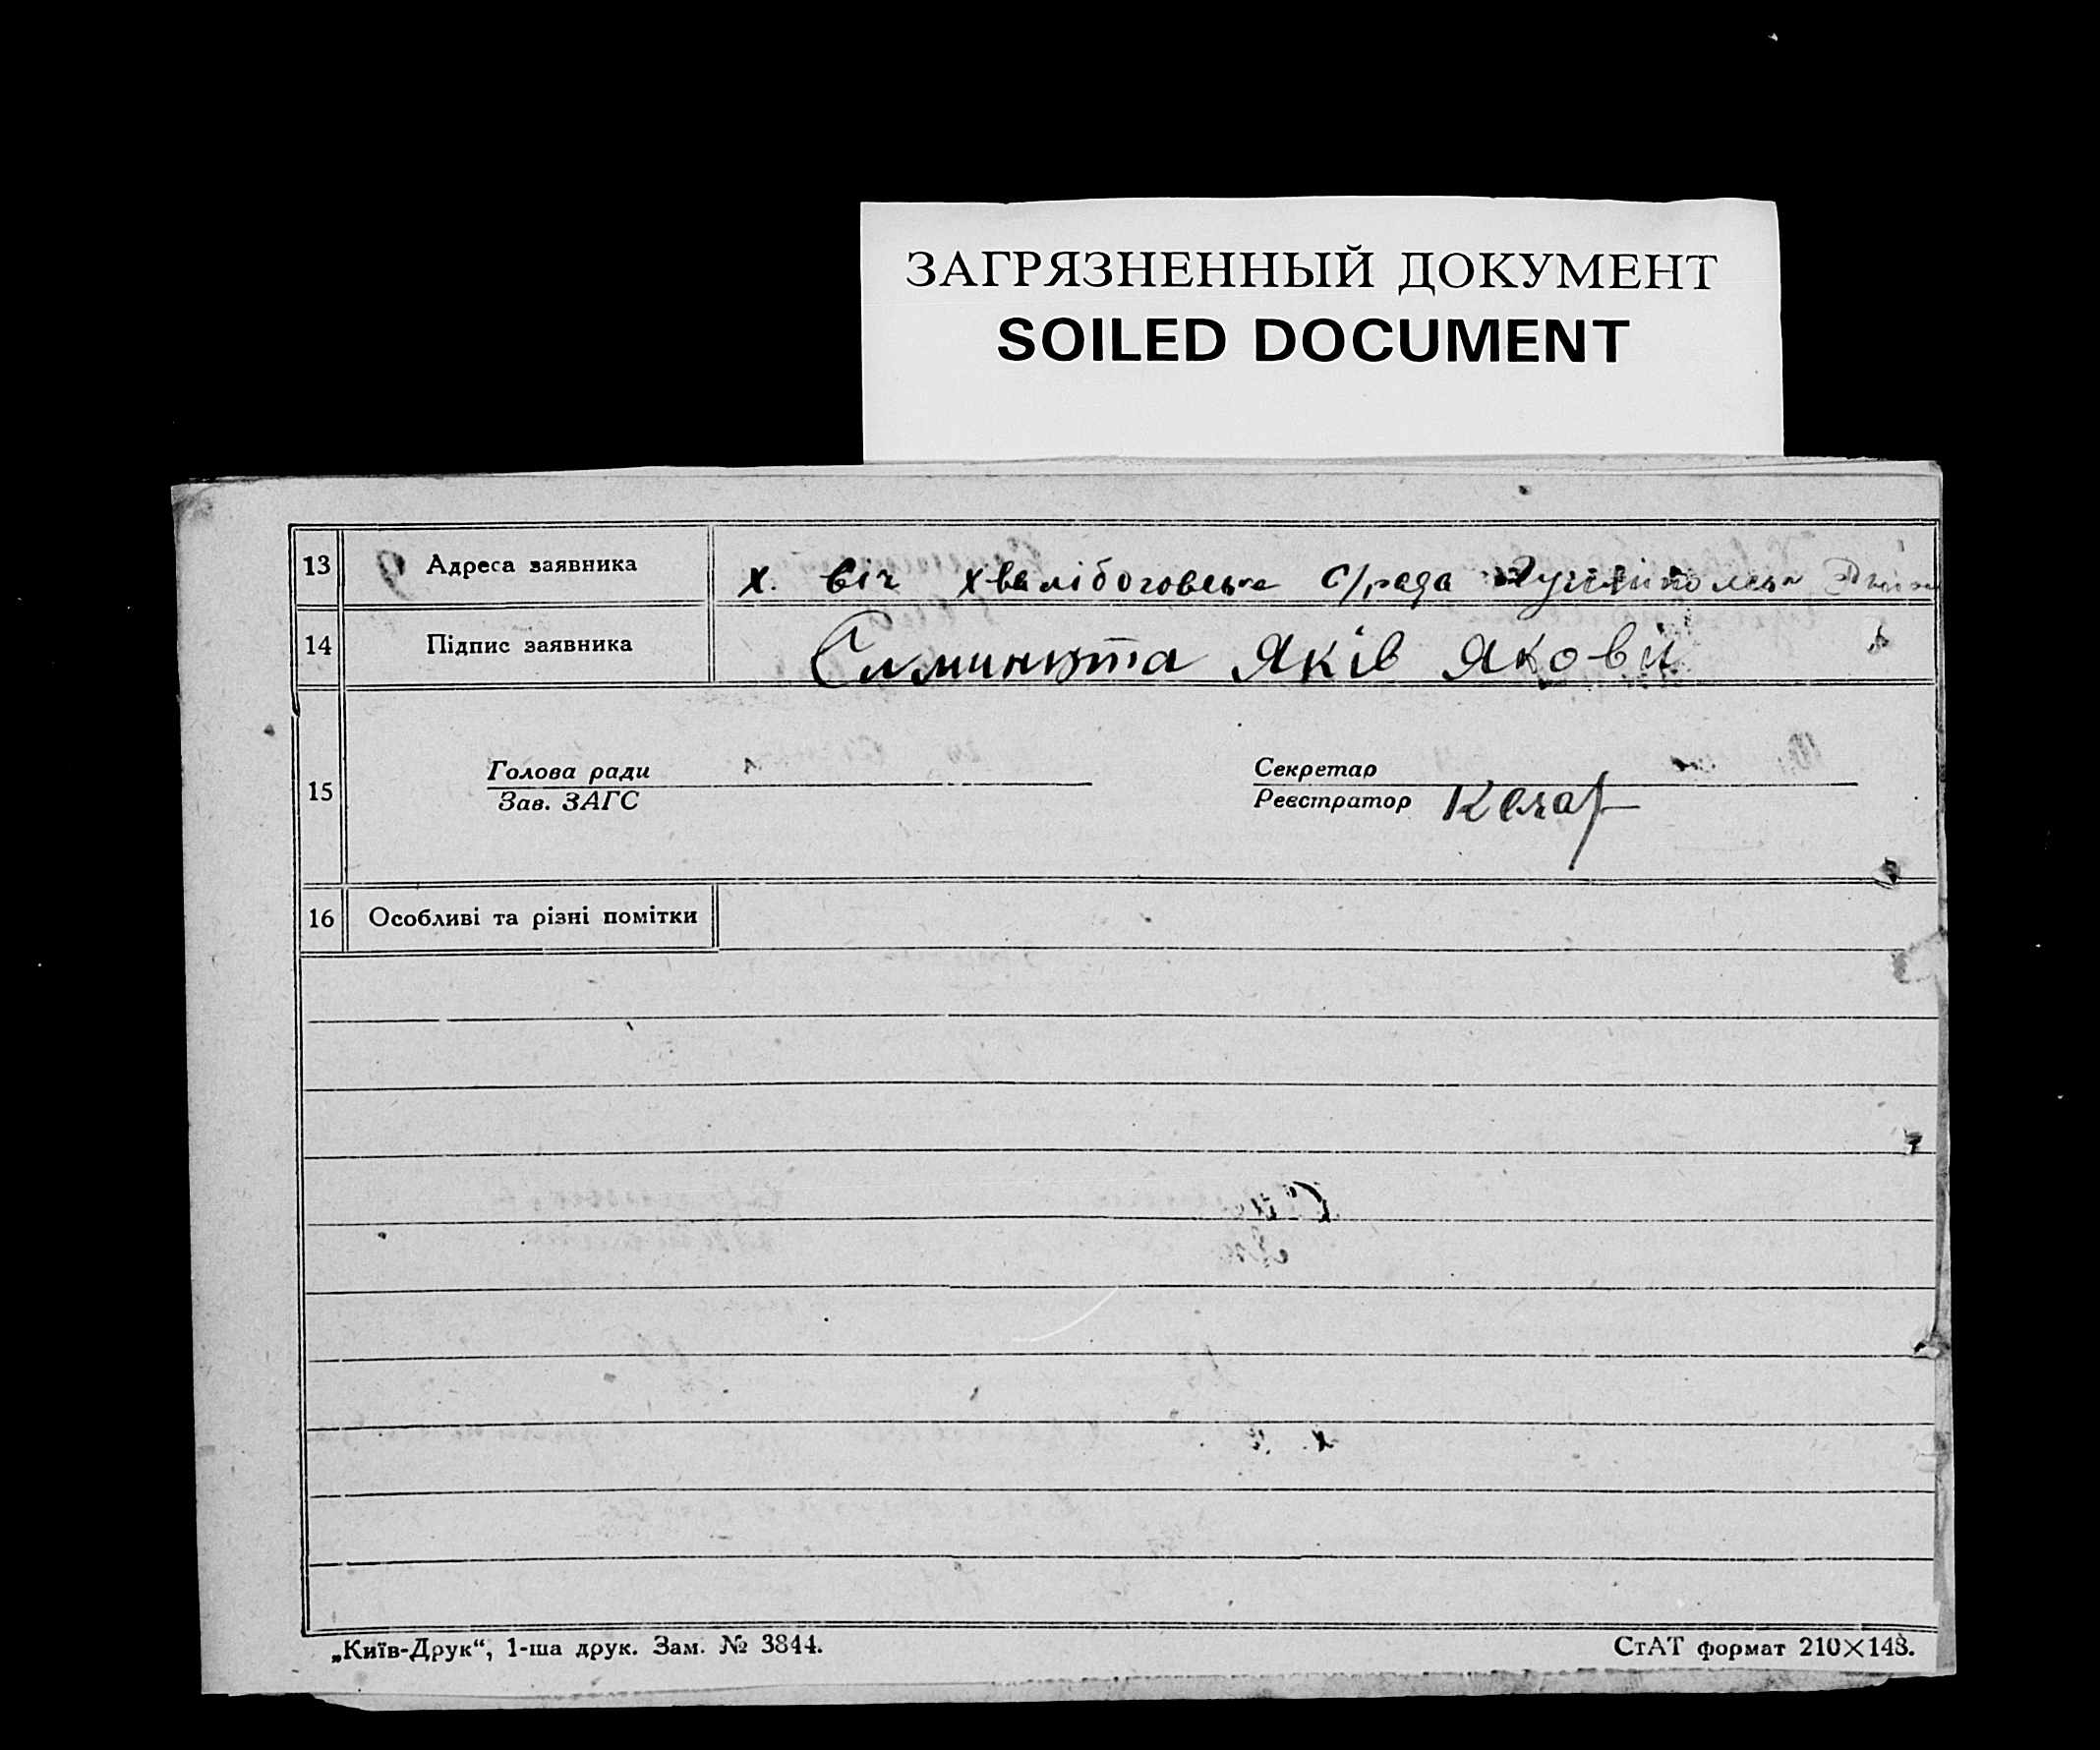 ЗАГРЯЗНЕННЫЙ ДОКУМЕНТ
SOILED DOCUMENT
13 Адреса заявника х. Віч Хвалібоговська с/рада
14 Підпис заявника Яків Якович
15
Голова ради
Зав. ЗАГС
Секретар
Реєстратор
16 Особливі та різні помітки
„Київ-Друк“, 1-ша друк. Зам. № 3844.
СтАТ формат 210×148.